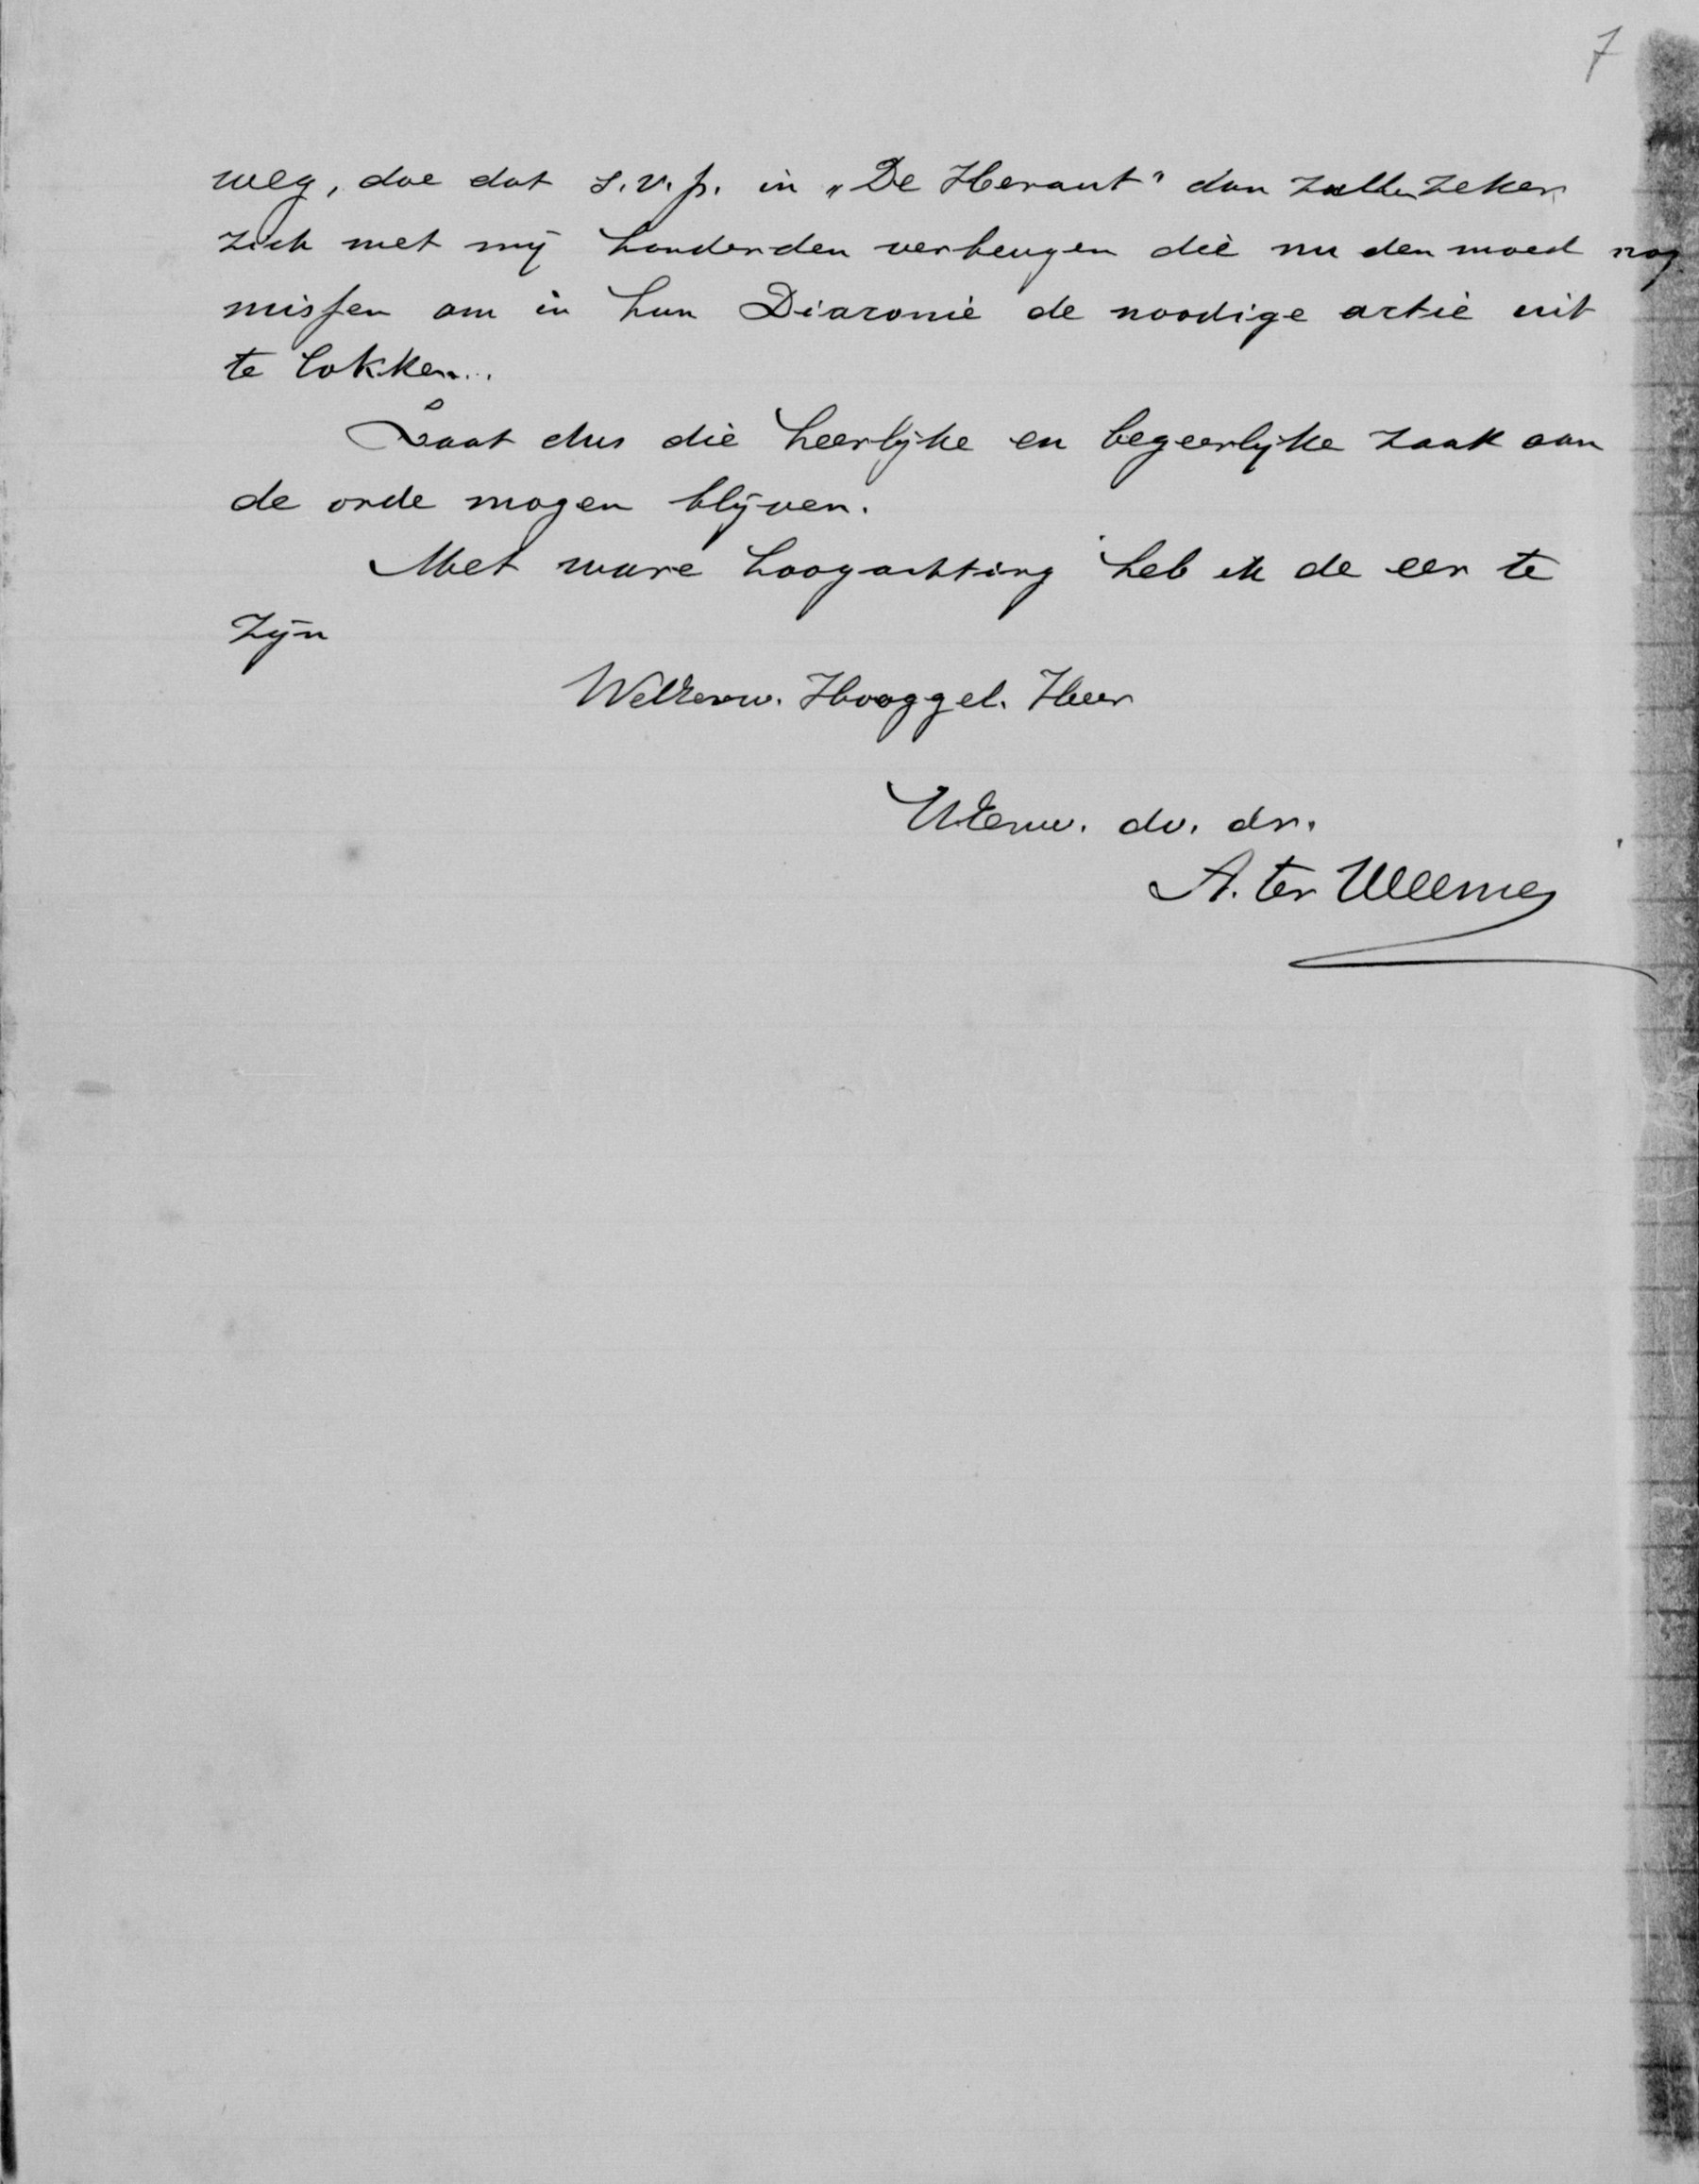 7
weg, doe dat s.v.p. in „De Heraut" dan zullen zeker
zich met mij honderden verheugen die nu den moed nog
missen om in hun Diaconie de noodige actie uit
te lokken...
Laat dus die heerlijke en begeerlijke zaak aan
de orde mogen blijven.
Met ware hoogachting heb ik de eer te
zijn
WelEerw. Hooggel. Heer
UEerw. dv. dr.
A. ter Weeme